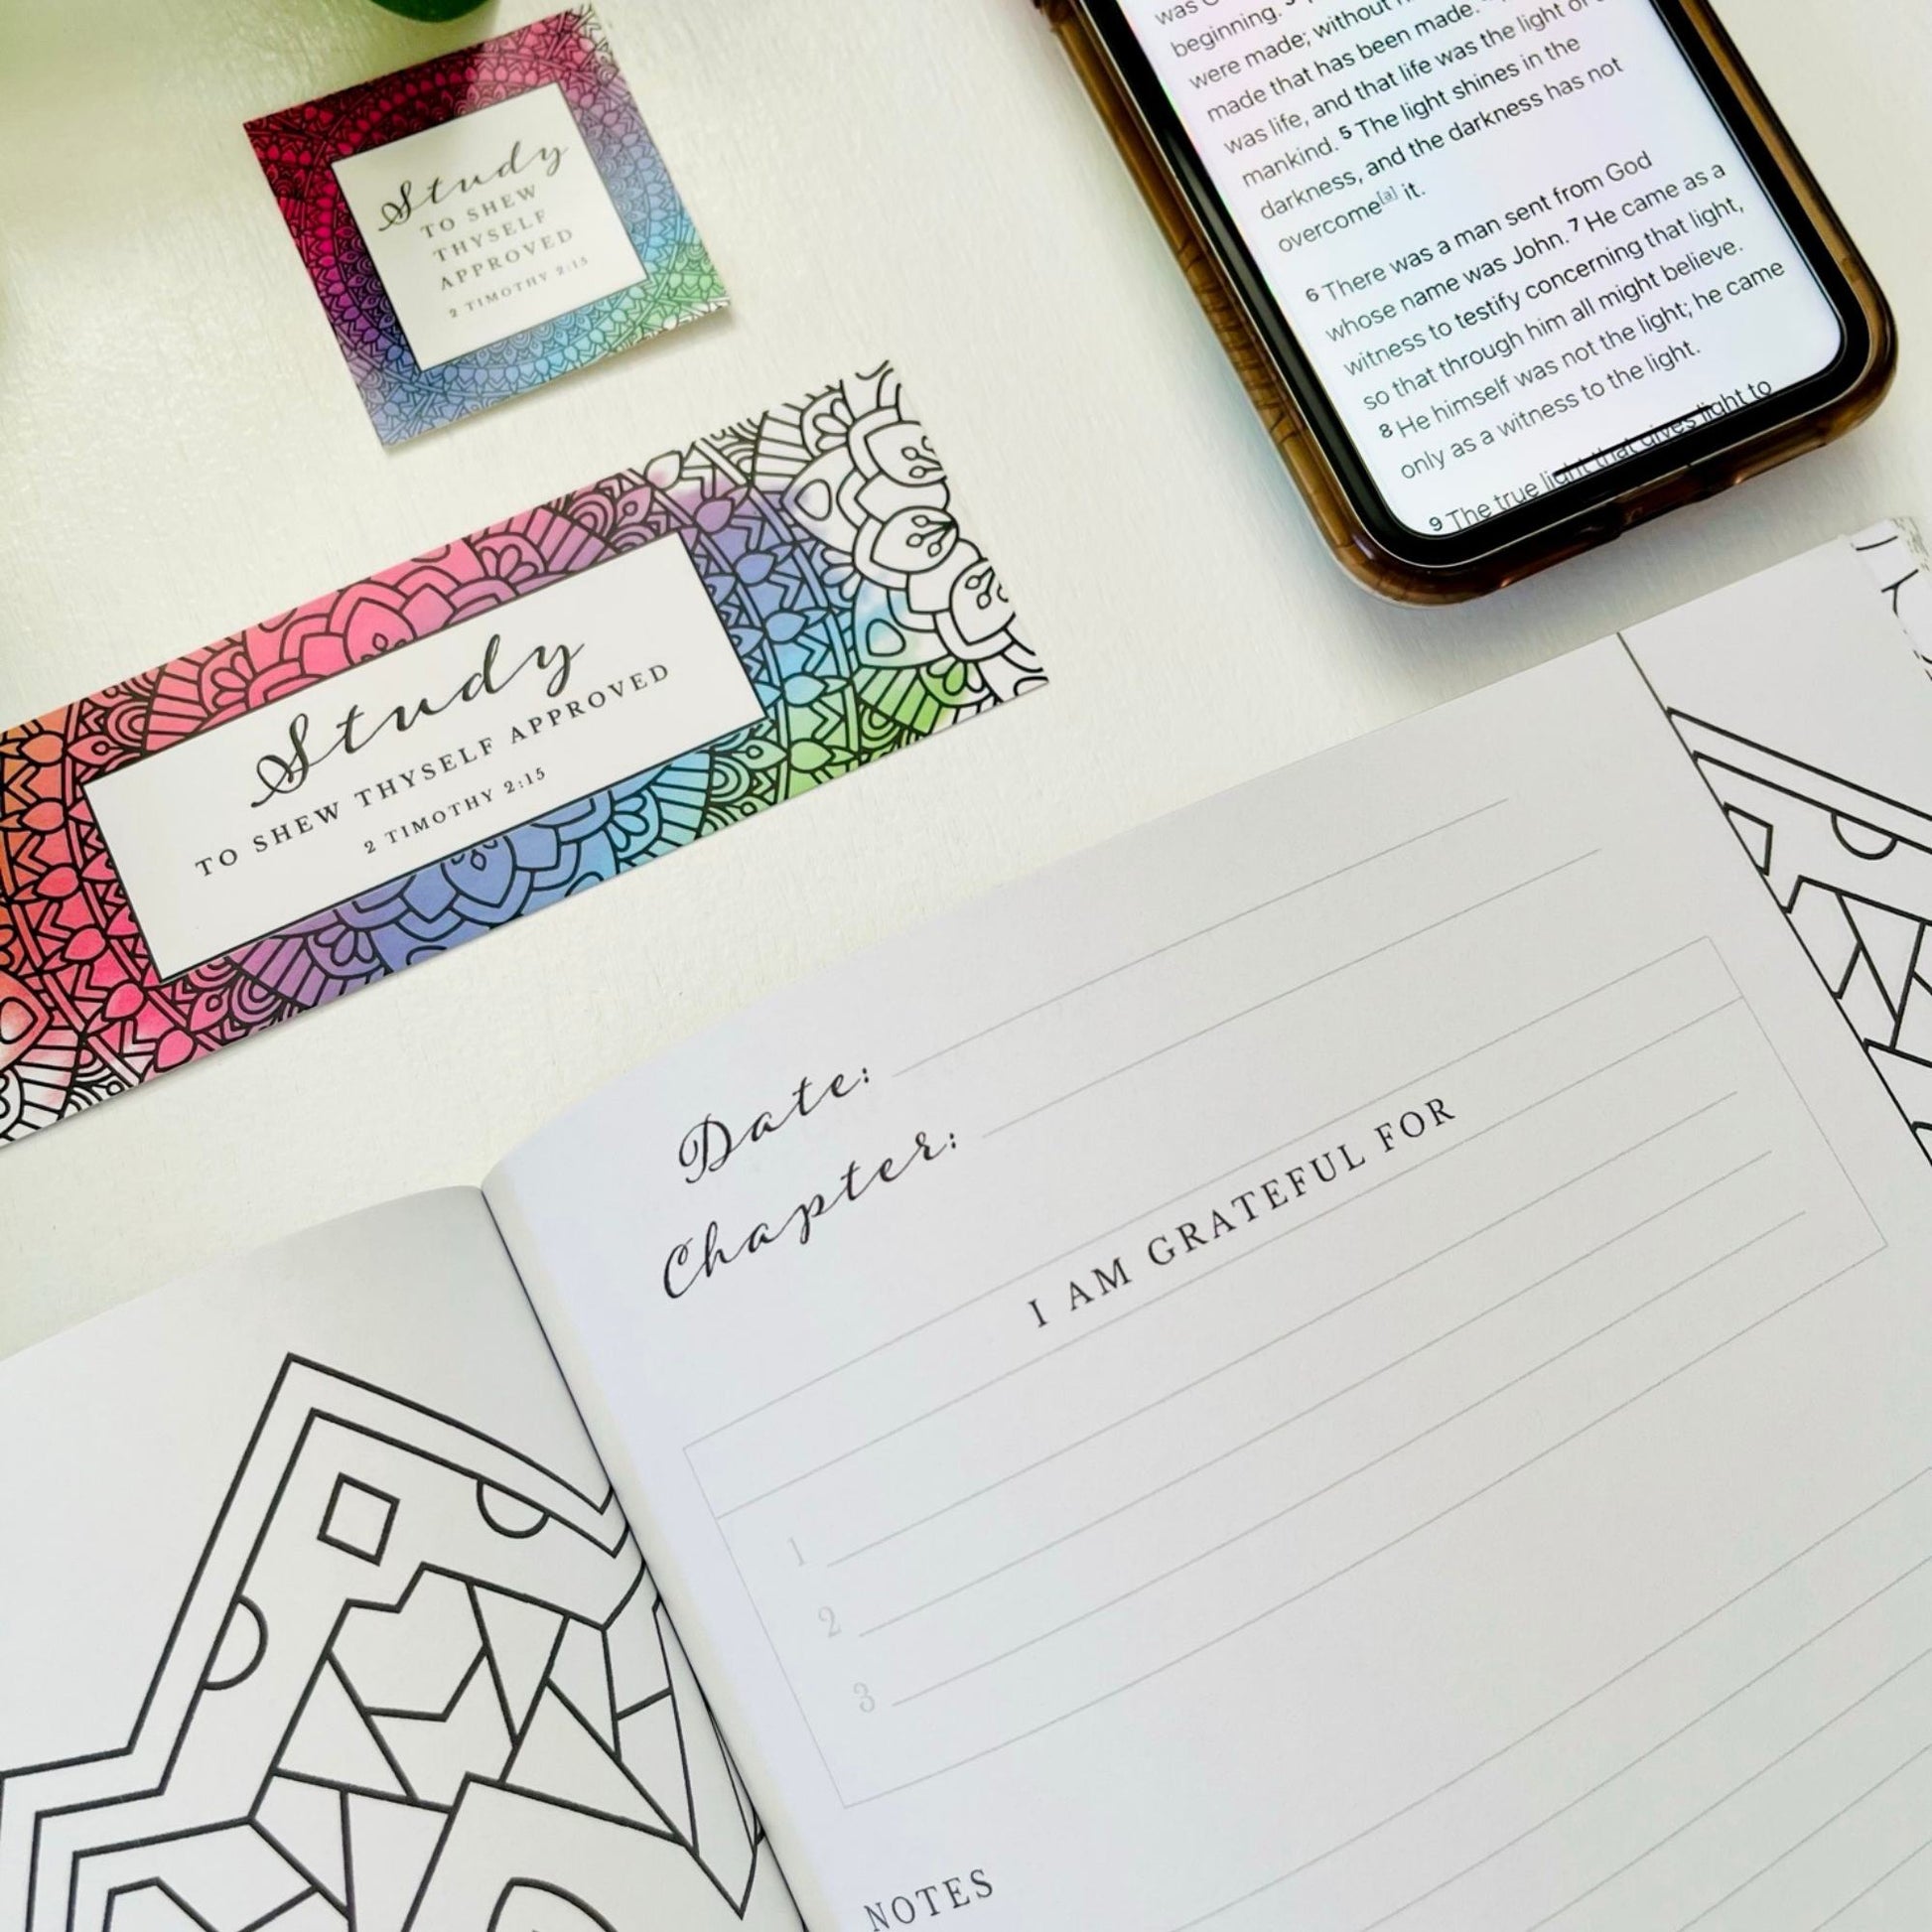 Study
TO SHEW
THYSELF
APPROVED
2 TIMOTHY 2:15
was
beginning.
were made; without
made that has been made.
was life, and that life was the light of
mankind. 5 The light shines in the
darkness, and the darkness has not
overcome[a] it.
6 There was a man sent from God
whose name was John. 7 He came as a
witness to testify concerning that light,
so that through him all might believe.
8 He himself was not the light; he came
only as a witness to the light.
9 The true light that gives light to
Study
TO SHEW THYSELF APPROVED
2 TIMOTHY 2:15
Date:
Chapter:
I AM GRATEFUL FOR
1
2
3
NOTES